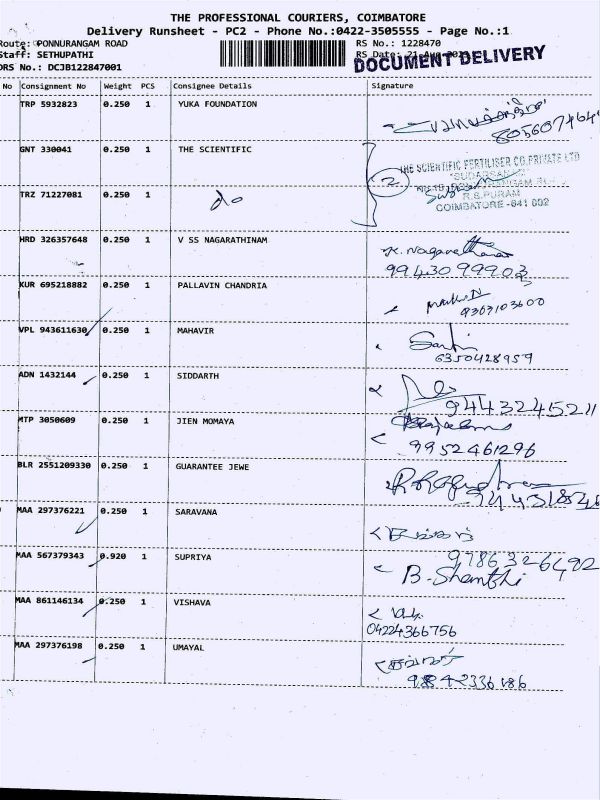 THE PROFESSIONAL COURIERS, COIMBATORE
Delivery Runsheet - PC2 - Phone No.:0422-3505555 - Page No.:1
Route: PONNURANGAM ROAD RS No.: 1228470
Staff: SETHUPATHI RS Date:
DRS No.: DCJB122847001 DOCUMENT DELIVERY
No Consignment No Weight PCS Consignee Details Signature
TRP 5932823 0.250 1 YUKA FOUNDATION
GNT 330041 0.250 1 THE SCIENTIFIC
THE SCIENTIFIC FERTILISER CO.PRIVATE LTD
"SUDARSANAM"
TRZ 71227081 0.250 1 do 2
R.S.PURAM
COIMBATORE-641 002
HRD 326357648 0.250 1 V SS NAGARATHINAM
9943099903
KUR 695218882 0.250 1 PALLAVIN CHANDRIA
9363103600
VPL 943611630 0.250 1 MAHAVIR
6350428959
ADN 1432144 0.250 1 SIDDARTH
9443245211
MTP 3050609 0.250 1 JIEN MOMAYA
9952461296
BLR 2551209330 0.250 1 GUARANTEE JEWE
MAA 297376221 0.250 1 SARAVANA
9786326492
MAA 567379343 0.920 1 SUPRIYA
B. Shanthi
MAA 861146134 0.250 1 VISHAVA
04224366756
MAA 297376198 0.250 1 UMAYAL
9842336186